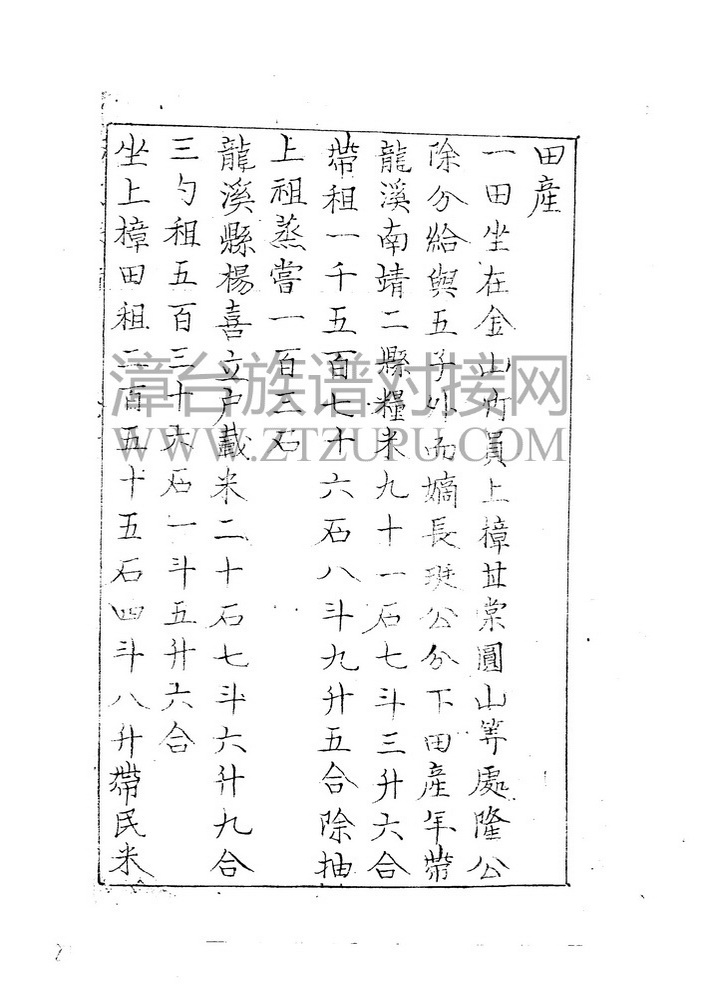 田產
一田坐在金山竹員上樟甘棠圓山等處隆公
除分給與五子外而嫡長珽公分下田產年帶
龍溪南靖二縣糧米九十一石七斗三升六合
帶租一千五百七十六石八斗九升五合除抽
上祖蒸嘗一百三石
龍溪縣楊喜立戶載米二十石七斗六升九合
三勺租五百三十六石一斗五升六合
坐上樟田租二百五十五石四斗八升帶民米
漳台族谱对接网
WWW.ZTZUPU.COM